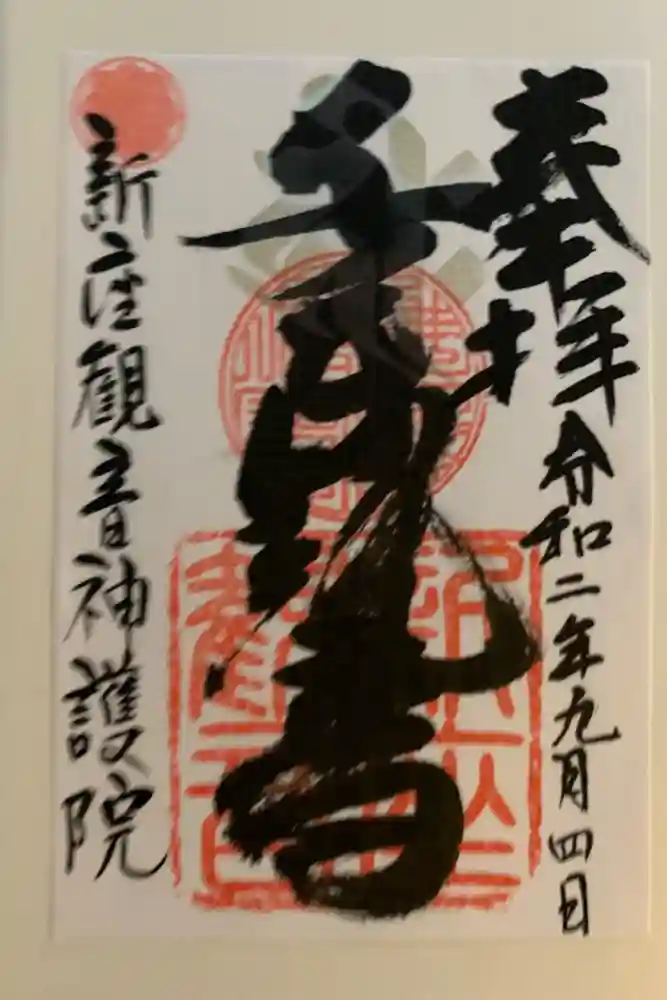 奉拝 令和二年九月四日
千手観音
新座觀音神護院